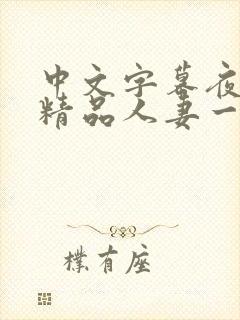 中文字幕夜
精品人妻一
樸有座